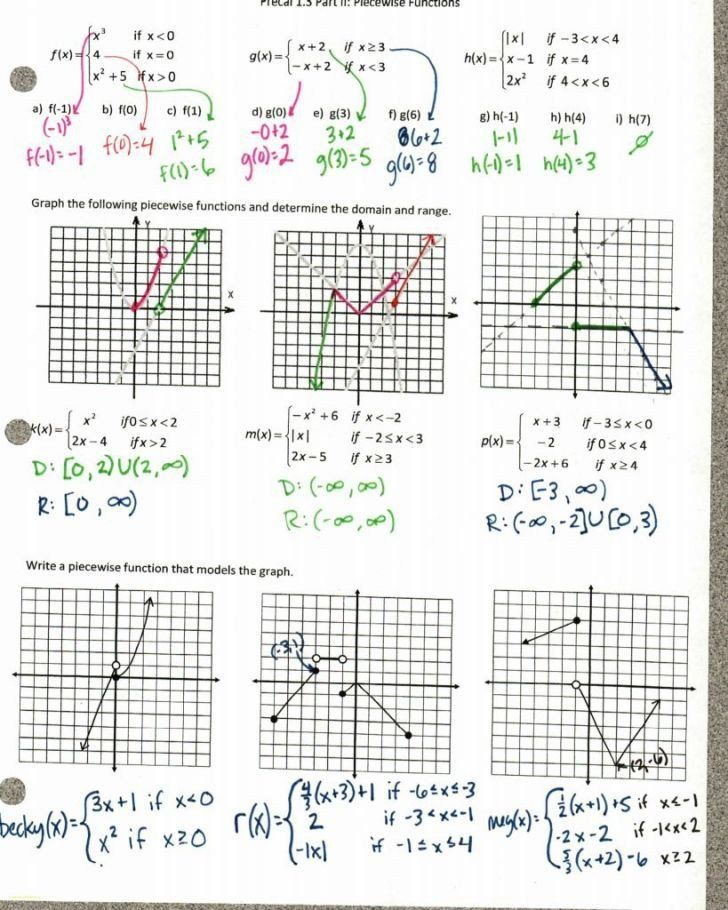 Precal 1.3 Part II: Piecewise Functions
f(x)= { x³ if x<0
4 if x=0
x²+5 if x>0
g(x)= { x+2, if x≥3
-x+2 if x<3
h(x)= { |x| if -3<x<4
x-1 if x=4
2x² if 4<x<6
a) f(-1) b) f(0) c) f(1) d) g(0) e) g(3) f) g(6) g) h(-1) h) h(4) i) h(7)
(-1)³ 1²+5 -0+2 3+2 6+2 |-1| 4-1 ∅
f(-1)=-1 f(0)=4 f(1)=6 g(0)=2 g(3)=5 g(6)=8 h(-1)=1 h(4)=3
Graph the following piecewise functions and determine the domain and range.
Y
X
Y
X
k(x)= { x² if0≤x<2
2x-4 ifx>2
D: [0,2)U(2,∞)
R: [0,∞)
m(x)= { -x²+6 if x<-2
|x| if -2≤x<3
2x-5 if x≥3
D: (-∞,∞)
R: (-∞,∞)
p(x)= { x+3 if-3≤x<0
-2 if0≤x<4
-2x+6 if x≥4
D: [-3,∞)
R: (-∞,-2]U[0,3)
Write a piecewise function that models the graph.
(-3,1)
(2,-6)
becky(x)= { 3x+1 if x<0
x² if x≥0
r(x)= { 4/3(x+3)+1 if -6≤x≤-3
2 if -3<x<-1
-|x| if -1≤x≤4
meg(x)= { 1/2(x+1)+5 if x≤-1
-2x-2 if -1<x<2
5/3(x+2)-6 x≥2